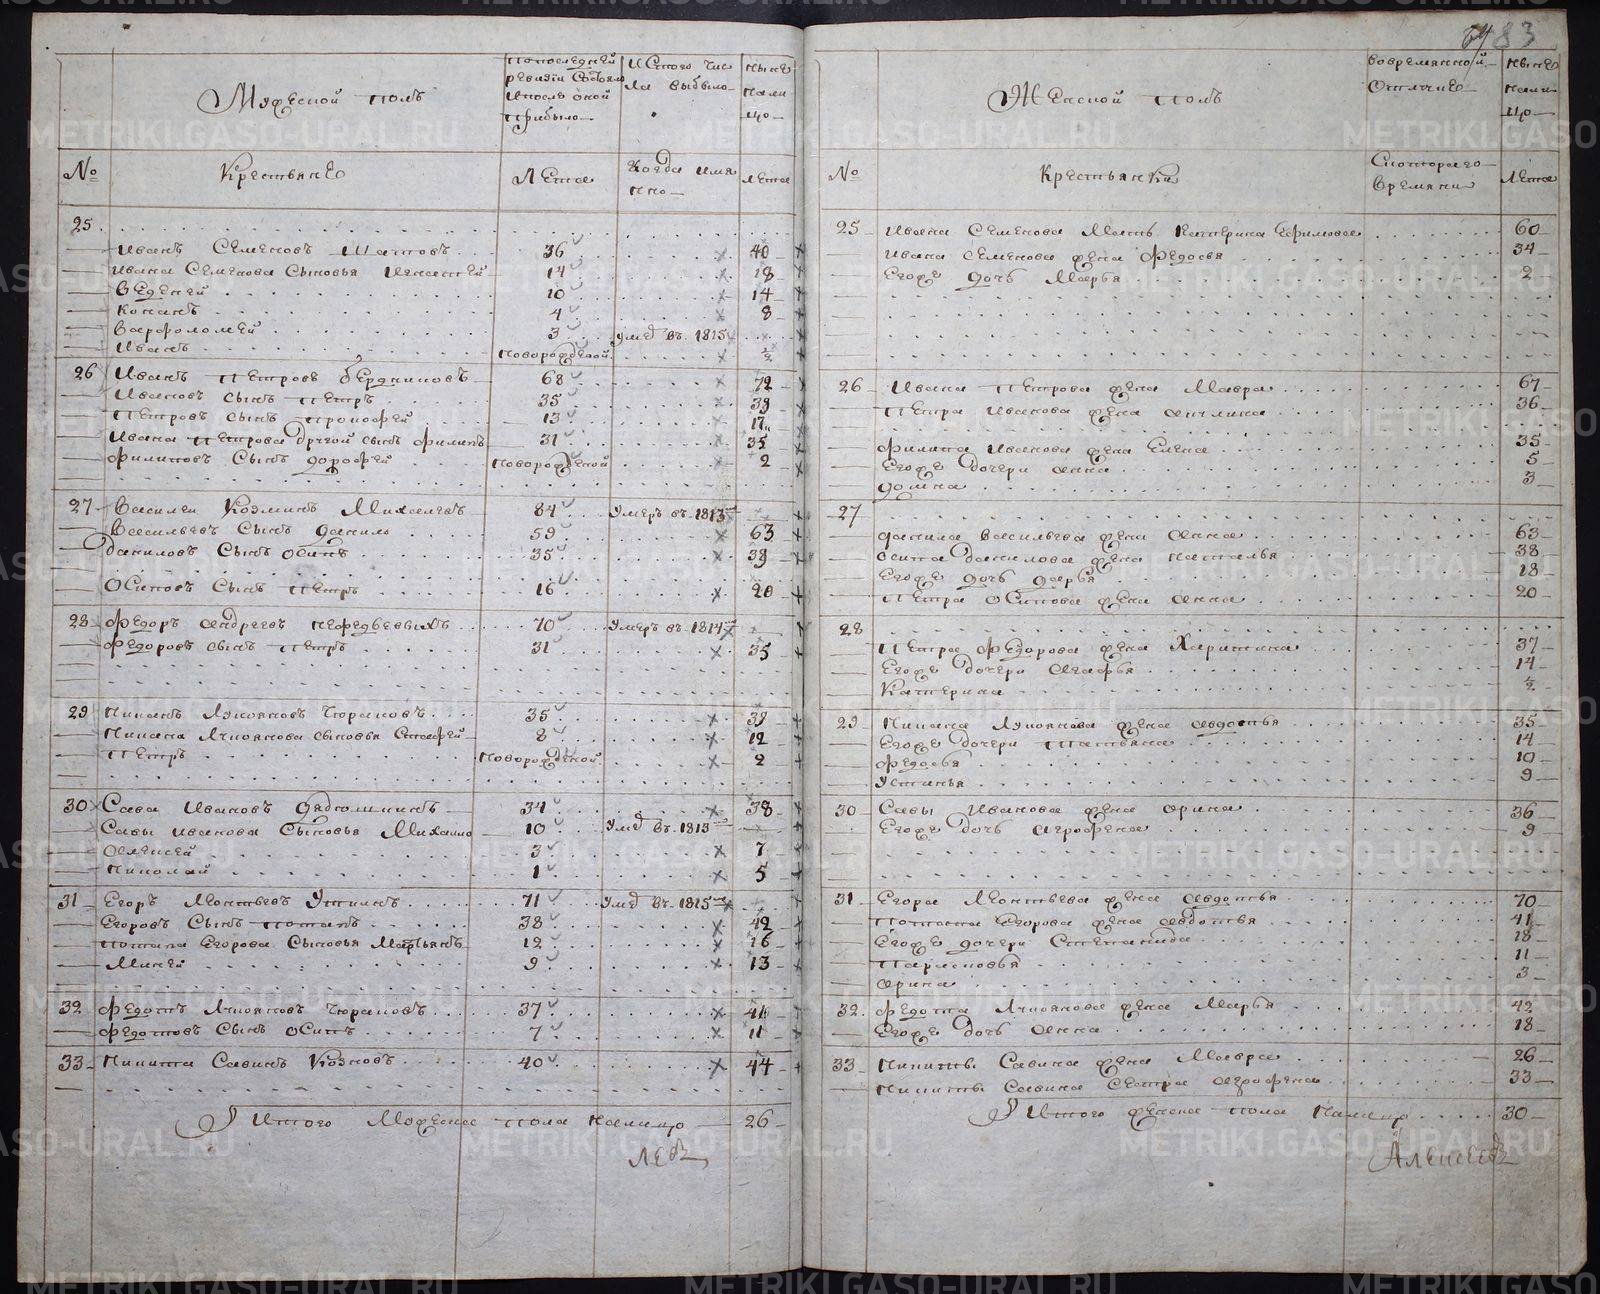 64 83
Мужеской полъ
По последней ревизіи состояло и после оной прибыло
Ис того числа выбыло
Ныне на лицо
№
Крестьяне
Лета
Когда имянно
Лета
25
Иванъ Семеновъ 36 40
Ивана Семенова сыновья 14 18
10 14
Кононъ 4 8
Варфоломей 3 умеръ въ 1815
Иванъ новорожденой ½
26 Иванъ Петровъ 68 72
Ивановъ сынъ Петръ 35 39
Петровъ сынъ Прокофей 13 17
Ивана Петрова другой сынъ Филипъ 31 35
Филиповъ сынъ Дорофей новорожденой 2
27 Василеи Козминъ Михалевъ 84 умеръ въ 1813
Васильевъ сынъ Данило 59 63
Даниловъ сынъ Осипъ 35 39
Осиповъ сынъ Петръ 16 20
28 Федоръ Андреевъ 70 умеръ въ 1814
Федоровъ сынъ Петръ 31 35
29 Никонъ Лукояновъ Чюраковъ 35 39
Никона Лукоянова сыновья 8 12
Петръ новорожденой 2
30 Сава Ивановъ 34 38
Савы Иванова сыновья Михаило 10 умеръ въ 1813
Алексей 3 7
Николай 1 5
31 Егоръ Леонтьевъ 71 умеръ въ 1815
Егоровъ сынъ Потапъ 38 42
Потапа Егорова сыновья Мартьянъ 12 16
Миней 9 13
32 Федотъ Лукояновъ Чюраковъ 37 41
Федотовъ сынъ Осипъ 7 11
33 Никита Савинъ Козловъ 40 44
Итого мужеска пола на лицо 26
Левъ
Женской полъ
Во временной отлучке
Ныне на лицо
№
Крестьянки
С котораго времяни
Лета
25 Ивана Семенова мать Катерина Ефимовна 60
Ивана Семенова жена Федосья 34
Егоже дочь Марья 2
26 Ивана Петрова жена Мавра 67
Петра Иванова жена Акилина 36
Филипа Иванова жена Елена 35
Егоже дочери Анна 5
Домна 3
27
Данила Васильева жена Анна 63
Осипа Данилова жена Наталья 38
Егоже дочь Дарья 18
Петра Осипова жена Анна 20
28
Петра Федорова жена Харитина 37
Егожъ дочери Агафья 14
Катерина ½
29 Никона Лукоянова жена Авдотья 35
Егоже дочери Татьяна 14
Федосья 10
Устинья 9
30 Савы Иванова жена Орина 36
Егоже дочь Агрофена 9
31 Егора Леонтьева жена Авдотья 70
Потапа Егорова жена Авдотья 41
Егоже дочери Степанида 18
Парасковья 11
Орина 3
32 Федота Лукоянова жена Марья 42
Егоже дочь Анна 18
33 Никиты Савина жена Мавра 26
Никиты Савина сестра Агрофена 33
Итого женска пола на лицо 30
Алексеевъ
METRIKI.GASO-URAL.RU